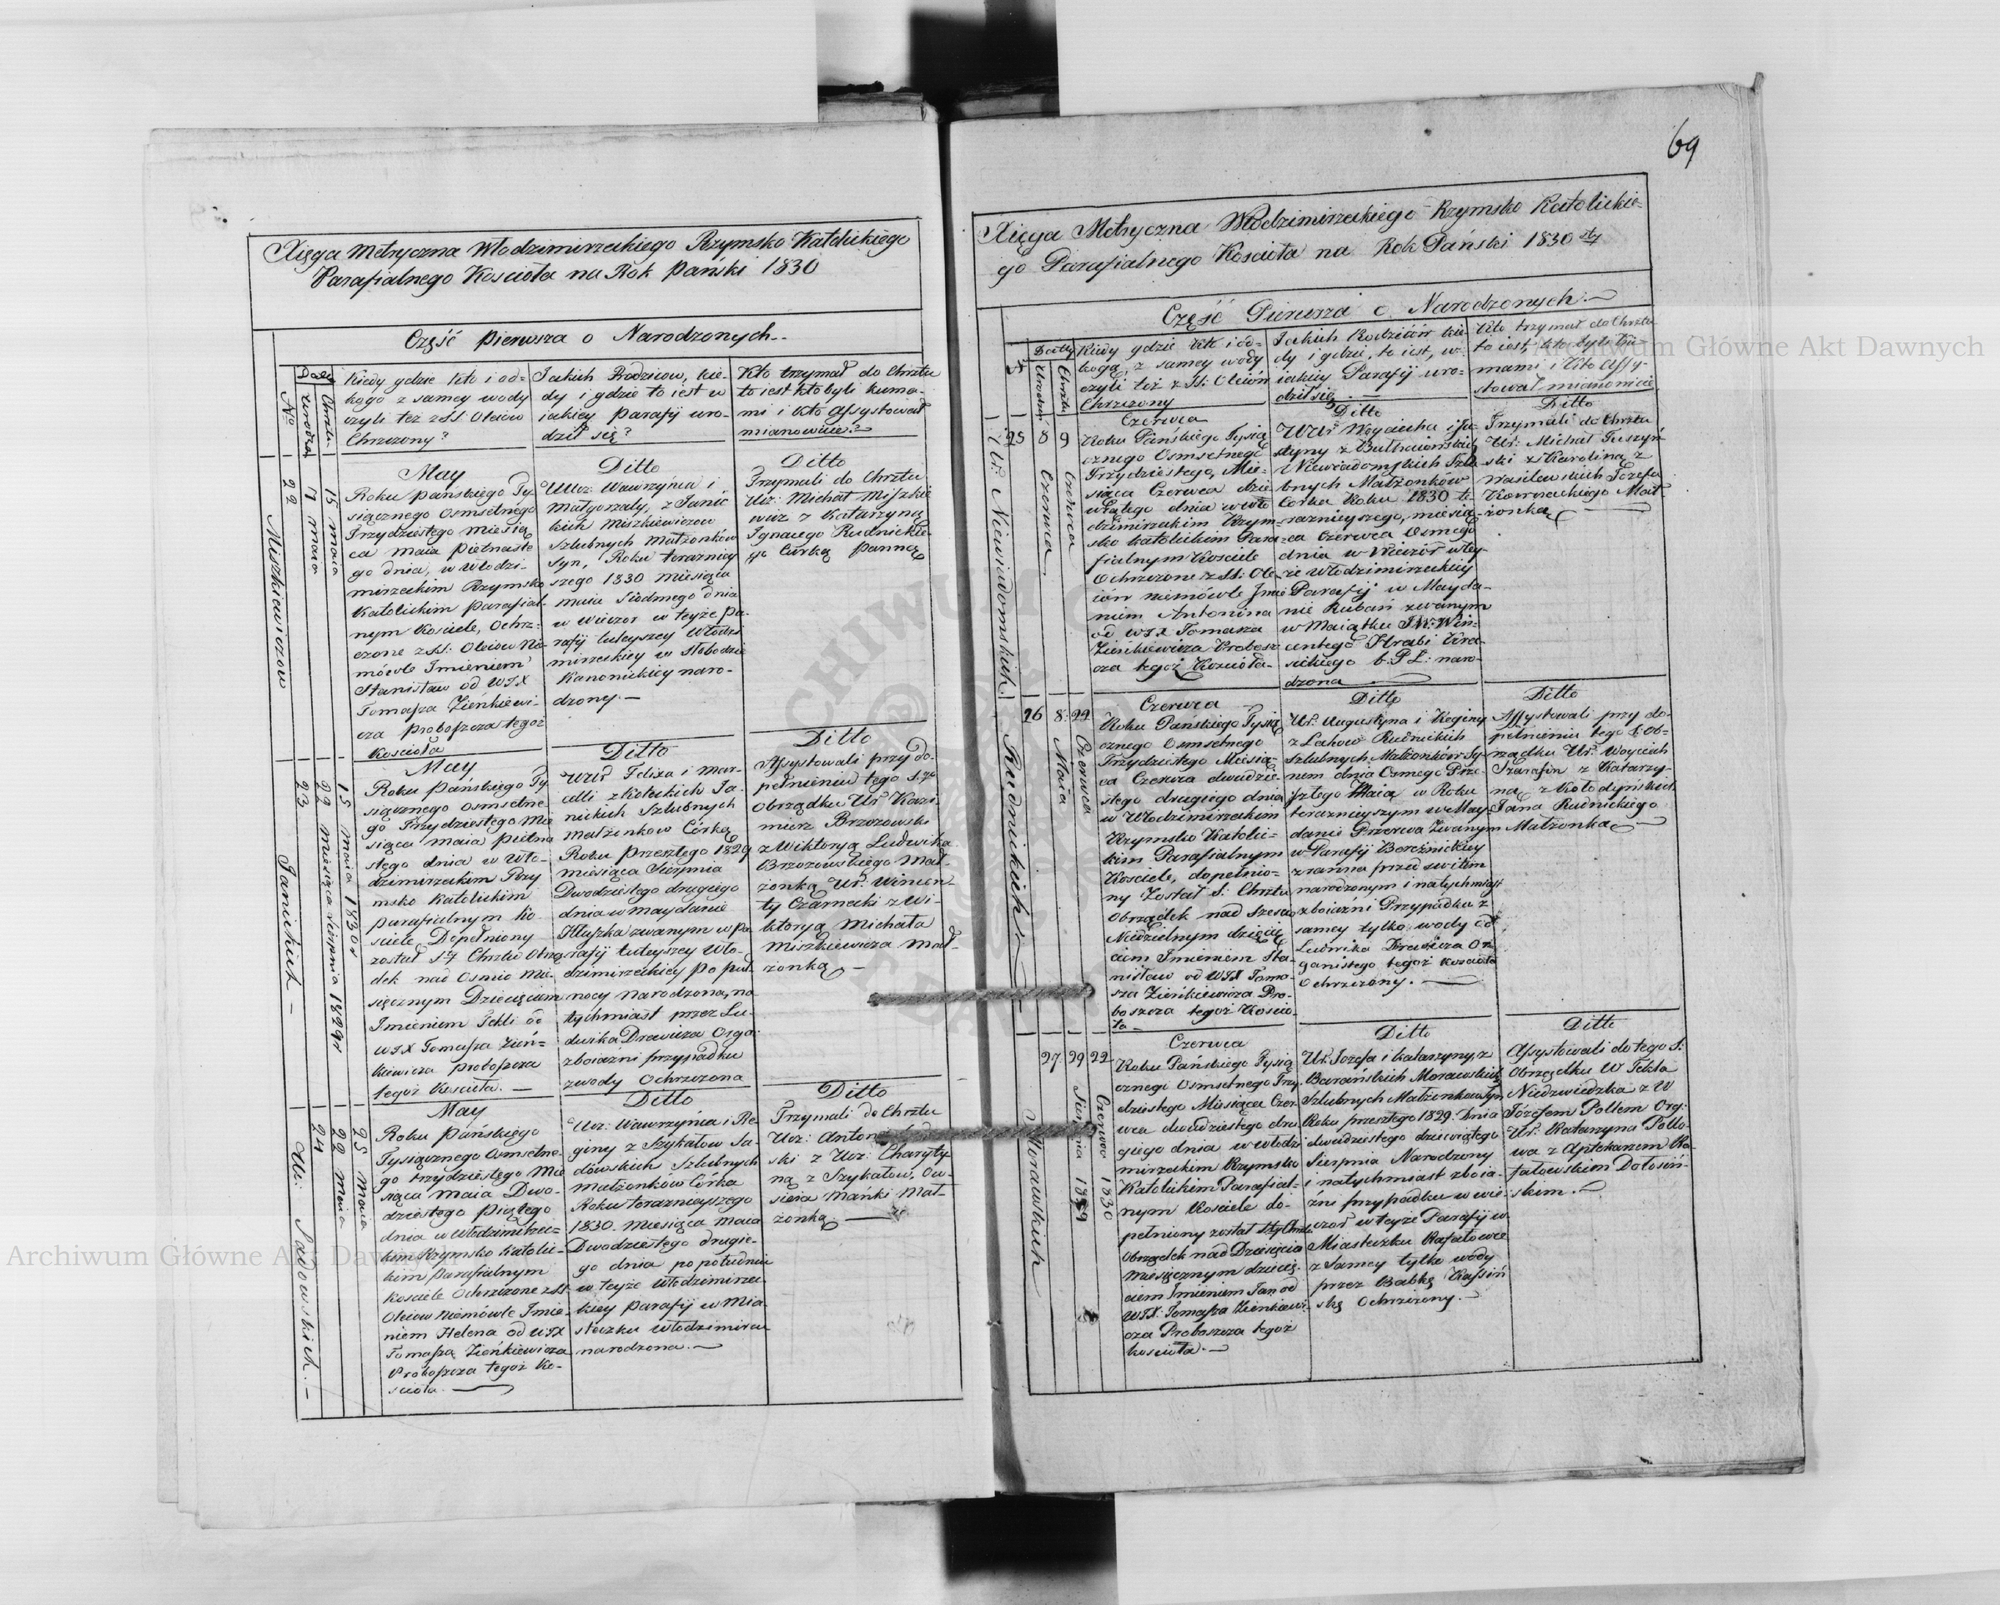 69
Xięga Metryczna Włodzimirzeckiego Rzymsko Katolickiego
Parafialnego Kościoła na Rok Pański 1830
Część Pierwsza o Narodzonych
No
Daty
Urodze.
Chrztu.
Kiedy gdzie kto i od-
kogo z samey wody
czyli też z SS. Oleiow
Chrzczony?
Jakich Rodzicow, kie-
dy i gdzie to iest w
iakiey parafij uro-
dził się?
Kto trzymał do Chrztu
to iest kto byli kuma-
mi i kto assystował
mianowicie?
22
Miszkiewiczow
7 maia
15 maia
May
Roku pańskiego Ty-
siącznego osmsetnego
Trzydziestego miesią
ca maia piętnaste
go dnia, w Włodzi-
mirzeckim Rzymsko
Katolickim parafial-
nym Kościele, Ochrz-
czone z SS. Oleiow Nie-
mówle Imieniem
Stanisław od WJX
Tomasza Zieńkiewi-
cza proboszcza tegoż
Kościoła
Ditto
Wawrzyńca i
Małgorzaty, z Janic
kich Miszkiewiczow
Szlubnych Małżonków
Syn, Roku teraźniey
szego 1830 miesiąca
maia Siodmego dnia
w wieczor w teyże pa-
rafij tuteyszey Włodzi
mirzeckiey w Słobodzie
Kanonickiey naro-
dzony.
Ditto
Trzymali do Chrztu
Ur: Michał Miszkie
wicz z Katarzyną
Ignacego Rudnickie-
go Curką panną
23
Janickich
22 miesiąca sierpnia 1829
15 maia 1830
May
Roku pańskiego Ty
siącznego osmsetne
go Trzydziestego Mie
siąca maia pietna
stego dnia w Wło-
dzimirzeckim Rzy
msko Katolickim
parafialnym Ko-
ściele Dopełniony
został S-y Chrztu Obrzą
dek nad Osmio Mie-
sięcznym Dziecięciem
Imieniem Tekli od
WJX Tomasza Zień-
kiewicza proboszcza
tegoż Kościoła.
Ditto
Felixa i Mar-
celli z Kieleckich Ja-
nickich Szlubnych
małżonkow Córką
Roku przeszłego 1829
miesiąca Sierpnia
Dwodziestego drugiego
dnia w maydanie
Hłuszka zwanym w pa
rafij tuteyszey Wło-
dzimirzeckiey po puł-
nocy narodzona, na
tychmiast przez Lu-
dwika Drawicza Orga:
z boiazni przypadku
z wody ochrzczona
Ditto
Assystowali przy do-
pełnieniu tego S-go
obrządku Ur: Kazi-
mierz Brzozowski
z Wiktoryą Ludwika
Brzozowskiego Mał-
żonką Ur: Wincen-
ty Czarnecki z Wi-
ktoryą Michała
Miszkiewicza mał-
żonką
24
Ur: Sadowskich.
22 Maia
25 Maia
May
Roku pańskiego
Tysiącznego osmsetne-
go trzydziestego Mie
siąca maia Dwo-
dziestego piątego
dnia w Włodzimirzec-
kim Rzymsko Katolic-
kim parafialnym
Kościele Ochrzczone z SS
Oleiow Niemówle Imie-
niem Helena od WJX
Tomasza Zieńkiewicza
Proboszcza tegoż Ko-
ścioła.
Ditto
Ur: Wawrzyńca i Re-
giny z Szykałow Sa-
dowskich Szlubnych
małżonków Córka
Roku teraznieyszego
1830. miesiąca maia
Dwodziestego drugie-
go dnia po południu
w teyże Włodzimirzec
kiey parafij w Mia-
steczku Włodzimircu
narodzona.
Ditto
Trzymali do Chrztu
Ur: Anton
ski z Ur: Charyty-
ną z Szykałow,
Mał-
żonką.
Xięga Metryczna Włodzimirzeckiego Rzymsko Katolickie-
go Parafialnego Kościoła na Rok Pański 1830
Część Pierwsza o Narodzonych.
Daty
Urodze
Chrztu
Kiedy gdzie kto i od-
kogo, z samey wody
czyli też z SS: Oleiów
Chrzczony
Jakich Rodzicow kie-
dy i gdzie, to iest, w
iakiey Parafij uro-
dził się
Kto trzymał do Chrztu
to iest, kto byli Ku-
mami i Kto Assy-
stował mianowicie
25
Ur. Niewiadomskich
8 Czerwca
9 Czerwca
Czerwca
Roku Pańskiego Tysią
cznego Osmsetnego
Trzydziestego, Mie-
siąca Czerwca dzie
wiątego dnia w Wło
dzimirzeckim Rzym-
sko katolickim Para-
fialnym Kościele
Ochrzczone z SS: Ole-
iów niemówle Imie
niem Antonina
od WJX Tomasza
Zieńkiewicza Probosz
cza tegoż Kościoła
Ditto
Woyciecha i Ju-
styny z
Niewiadomskich Szlu-
bnych Małżonków
Córka Roku 1830 te-
raznieyszego, miesią-
ca Czerwca Osmego
dnia w Wieczór w tey-
że Włodzimirzeckiey
Parafij w Mayda-
nie Rubań zwanym
w Maiątku JW: Win-
centego Hrabi Kra-
sickiego b.P.L: naro-
dzona
Ditto
Trzymali do Chrztu
Ur: Michał Tuszyń
ski z Karoliną z
Wasilewskich Józefa
Małżonką
26
Rudnickich
8: Maia
22 Czerwca
Czerwca
Roku Pańskiego Tysią
cznego Osmsetnego
Trzydziestego Miesią-
ca Czerwca dwudzie
stego drugiego dnia
w Włodzimirzeckim
Rzymsko Katolic-
kim Parafialnym
Kościele, dopełnio-
ny Został S: Chrztu
Obrządek nad Szescio
Niedzielnym dziecię
ciem Imieniem Sta-
nisław od WJX Toma-
sza Zieńkiewicza Pro-
boszcza tegoż Kościo-
ła
Ditto
Ur. Augustyna i Reginy
z Lahow Rudnickich
Szlubnych Małżonków Sy-
nem dnia Osmego Prze-
szłego Maia w Roku
teraznieyszym w May
danie Przerwa Zwanym
w Parafij Bereznickiey
z ranna przed switem
narodzonym i natychmiast
z boiaźni Przypadku z
samey tylko wody od
Ludwika Drawicza Or
ganistego tegoż Kościoła
Ochrzczony.
Ditto
Assystowali przy do-
pełnieniu tego S: Ob-
rządku Ur: Woyciech
Szarafin z Katarzy-
ną z Kołodyńskich
Jana Rudnickiego
Małżonką
27
Morawskich
29 Sierpnia 1829
22 Czerwca 1830
Czerwca
Roku Pańskiego Tysią
cznego Osmsetnego Trzy
dziestego Miesiąca Czer-
wca dwudziestego dru
giego dnia w Włodzi
mirzeckim Rzymsko
Katolickim Parafial-
nym Kościele do-
pełniony został S-ty Chrztu
Obrządek nad Dziesięcio
miesięcznym dziecię-
ciem Imieniem Jan od
WJX: Tomasza Zieńkiewi
cza Proboszcza tegoż
kościoła.
Ditto
Ur. Jozefa i Katarzyny, z
Barańskich Morawskich
Szlubnych Małżonkow Syn
Roku przeszłego 1829. Dnia
dwudziestego dziewiątego
Sierpnia Narodzony
i natychmiast z boia-
źni przypadku w wie
czor w teyże Parafij w
Miasteczku Rafałowce
z Samey tylko wody
przez Babkę
Ochrzczony.
Ditto
Assystowali do tego S:
Obrządku W Tekla
Niedzwiedzka z W
Józefem Pollem Org:
Ur: Katarzyna Pollo-
wa z Aptekarzem Ra-
fałowskim
skim.
Archiwum Główne Akt Dawnych
Archiwum Główne Akt Dawnych